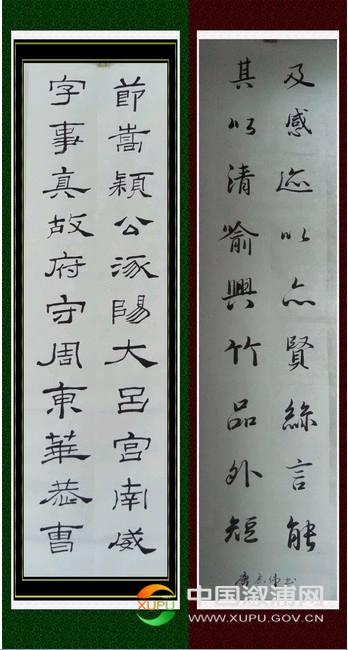 節嵩潁公涿陽大呂宫南威
字事真故府守周東華恭曹
及感迹以亦賢絲言能
其以清喻興竹品外短
XUPU
中国溆浦网
WWW.XUPU.GOV.CN